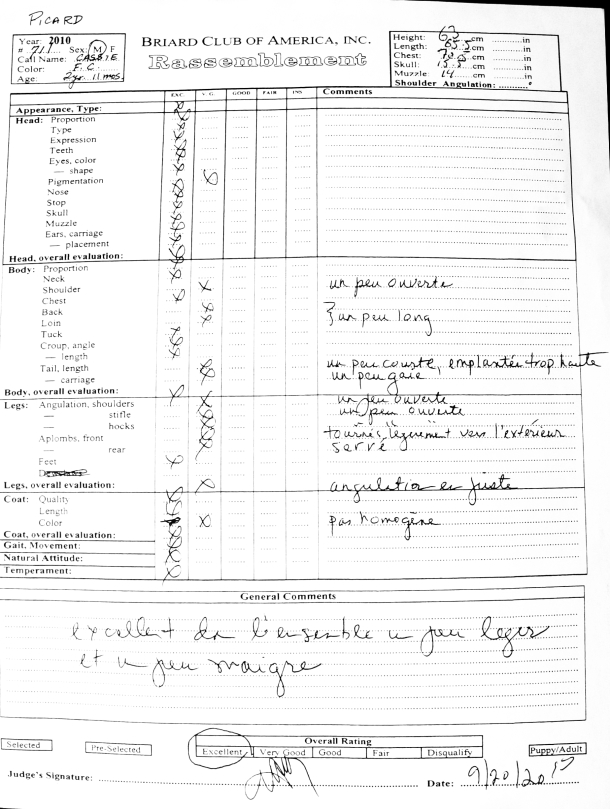 PICARD
Year: 2010
# 711 Sex: M F
Call Name: CASSIE
Color: F.C.
Age: 2yr 11 mos.
BRIARD CLUB OF AMERICA, INC.
Rassemblement
Height: 63 cm in
Length: 65.5 cm in
Chest: cm in
Skull: cm in
Muzzle: 14 cm in
Shoulder Angulation: °
EXC. V. G. GOOD FAIR INS Comments
Appearance, Type:
Head: Proportion
Type
Expression
Teeth
Eyes, color
— shape
Pigmentation
Nose
Stop
Skull
Muzzle
Ears, carriage
— placement
Head, overall evaluation:
Body: Proportion
Neck
Shoulder un peu ouverte
Chest
Back
Loin } un peu long
Tuck
Croup, angle
— length
Tail, length un peu courte, emplantée trop haute
— carriage un peu gaie
Body, overall evaluation:
Legs: Angulation, shoulders un peu ouverte
— stifle un peu ouverte
— hocks " "
Aplombs, front tournés légèrement vers l'extérieur
— rear serré
Feet
Legs, overall evaluation: angulation en juste
Coat: Quality
Length
Color pas homogène
Coat, overall evaluation:
Gait, Movement:
Natural Attitude:
Temperament:
General Comments
excellent dan l'ensemble u peu leger
et u peu maigre
Selected Pre-Selected
Overall Rating
Excellent Very Good Good Fair Disqualify
Puppy/Adult
Judge's Signature: Date: 9/20/20